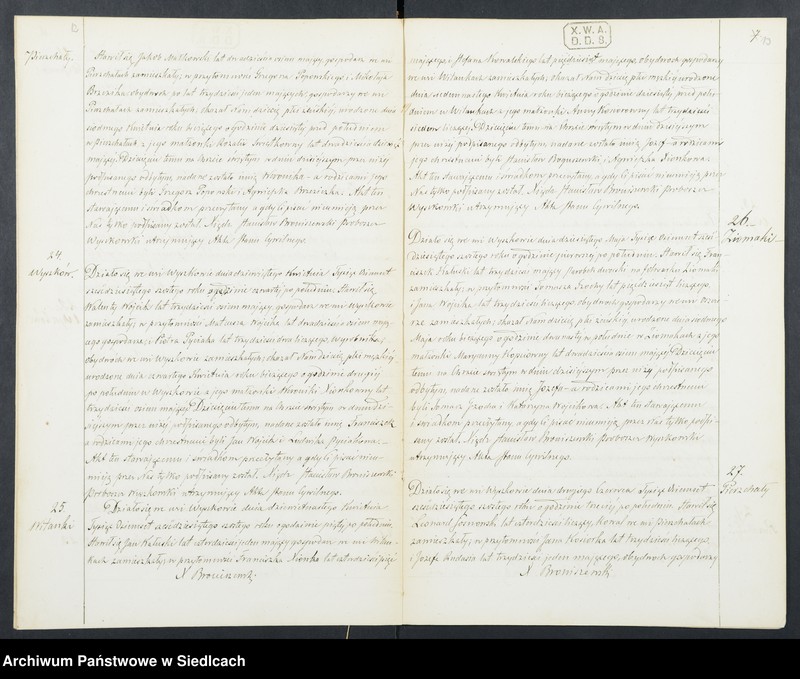 Pierzchały.
Stawił się Jakób Małkowski lat dwadzieścia ośmiu mający gospodarz we wsi
Pierzchałach zamieszkały, w przytomności Grzegorza Popowskiego i Mikołaja
Brzezika obydwóch po lat trzydzieści jeden mających, gospodarzy we wsi
Pierzchałach zamieszkałych, okazał Nam dziecię płci żeńskiej, urodzone dnia
siódmego Kwietnia roku bieżącego o godzinie dziesiątej przed południem
w Pierzchałach z jego małżonki Rozalii lat dwadzieścia
mającej. Dziecięciu temu na Chrzcie świętym w dniu dzisiejszym przez niżej
podpisanego odbytym, nadane zostało imię Weronika – a rodzicami jego
chrzestnemi byli Grzegorz Popowski i Agnieszka Brzezicka. Akt ten
stawającemu i świadkom przeczytany a gdy ci pisać nieumieją przez
Nas tylko podpisany został. Xiądz Stanisław Broniszewski Proboszcz
Wyszkowski utrzymujący Akta Stanu Cywilnego.
24.
Wyszków.
Działo się we wsi Wyszkowie dnia Kwietnia Tysiąc Ośmset
sześćdziesiątego szóstego roku o godzinie czwartej po południu. Stawił się
Walenty Wójcik lat trzydzieści ośm mający, gospodarz we wsi Wyszkowie
zamieszkały, w przytomności Mateusza Wójcika lat dwadzieścia ośm mają-
cego gospodarza, i Piotra lat trzydzieści dwa liczącego, Wyrobnika,
obydwóch we wsi Wyszkowie zamieszkałych, okazał Nam dziecię płci męzkiej
urodzone dnia czwartego Kwietnia roku bieżącego o godzinie drugiej
po południu w Wyszkowie z jego małżonki Weroniki lat
trzydzieści ośm mającej. Dziecięciu temu na Chrzcie świętym w dniu dzi-
siejszym przez niżej podpisanego odbytym, nadane zostało imię Franciszek
a rodzicami jego chrzestnemi byli Jan Wójcik i Ludwika
Akt ten stawającemu i świadkom przeczytany a gdy ci pisać nieu-
mieją przez Nas tylko podpisany został. Xiądz Stanisław Broniszewski
Proboszcz Wyszkowski utrzymujący Akta Stanu Cywilnego.
25
Witanki
Działo się we wsi Wyszkowie dnia Kwietnia
Tysiąc Ośmset sześćdziesiątego szóstego roku o godzinie piątej po południu.
Stawił się Jan Kaluski lat czterdzieści jeden mający gospodarz we wsi Witan-
kach zamieszkały, w przytomności Franciszka lat czterdzieści pięć
X Broniszewski.
X. W. A.
D. D. S.
7
mającego i Adama Kowalskiego lat pięćdziesiąt mającego, obydwóch gospodarzy
we wsi Witankach zamieszkałych, okazał Nam dziecię płci męzkiej urodzone
dnia siódmego Kwietnia roku bieżącego o godzinie dziesiątej przed połu-
dniem w Witankach z jego małżonki Anny lat trzydzieści
siedem liczącej. Dziecięciu temu na Chrzcie świętym w dniu dzisiejszym
przez niżej podpisanego odbytym nadane zostało imię Józef – a rodzicami
jego chrzestnemi byli Stanisław i Agnieszka
Akt ten stawającemu i świadkom przeczytany, a gdy ci pisać nieumieją przez
Nas tylko podpisany został. Xiądz Stanisław Broniszewski Proboszcz
Wyszkowski utrzymujący Akta Stanu Cywilnego.
26.
Ziomaki
Działo się we wsi Wyszkowie dnia dziesiątego Maja Tysiąc Ośmset sześć-
dziesiątego szóstego roku o godzinie pierwszej po południu. Stawił się Fran-
ciszek lat trzydzieści mający parobek dworski na folwarku Ziomaki
zamieszkały, w przytomności Tomasza lat pięćdziesiąt liczącego,
i Jana Wójcika lat trzydzieści liczącego obydwóch gospodarzy we wsi
zamieszkałych, okazał Nam dziecię płci żeńskiej, urodzone dnia siódmego
Maja roku bieżącego o godzinie dwunastej w południe w Ziomakach z jego
małżonki Maryanny lat dwadzieścia ośm mającej. Dziecięciu
temu na Chrzcie świętym w dniu dzisiejszym przez niżej podpisanego
odbytym nadane zostało imię Józefa – a rodzicami jego chrzestnemi
byli Tomasz i Katarzyna Wójcikowa. Akt ten stawającemu
i świadkom przeczytany, a gdy ci pisać nieumieją przez Nas tylko podpi-
sany został. Xiądz Stanisław Broniszewski Proboszcz Wyszkowski
utrzymujący Akta Stanu Cywilnego.
27.
Pierzchały
Działo się we wsi Wyszkowie dnia drugiego Czerwca Tysiąc Ośmset
sześćdziesiątego szóstego roku o godzinie trzeciej po południu. Stawił się
Leonard lat czterdzieści liczący, Kowal we wsi Pierzchałach
zamieszkały, w przytomności Jana lat trzydzieści liczącego,
i Józefa lat trzydzieści jeden mającego, obydwóch gospodarzy
X Broniszewski
Archiwum Państwowe w Siedlcach